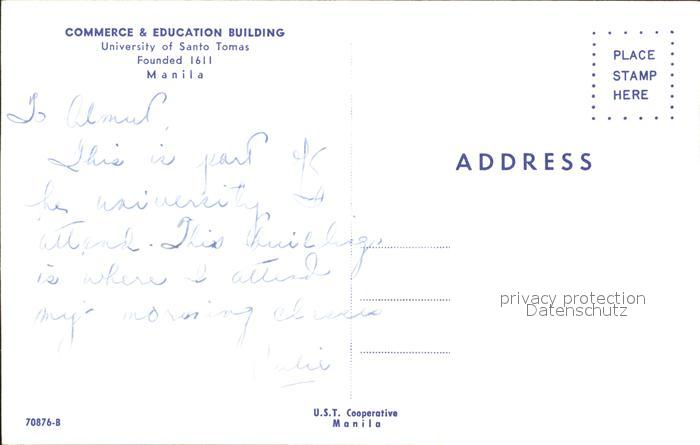 COMMERCE & EDUCATION BUILDING
University of Santo Tomas
Founded 1611
Manila
PLACE
STAMP
HERE
ADDRESS
To Almut,
This is part of
he university I
attend. This building
is where I attend
my morning classes
Julie
privacy protection
Datenschutz
70876-B
U.S.T. Cooperative
Manila